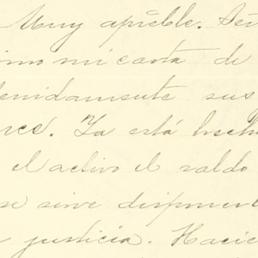 Muy aprèble. Señ
omo mi carta de
enidamente sus
rce. Ya está hecha
el activo el saldo
se sirve dispone
justicia. Hacie